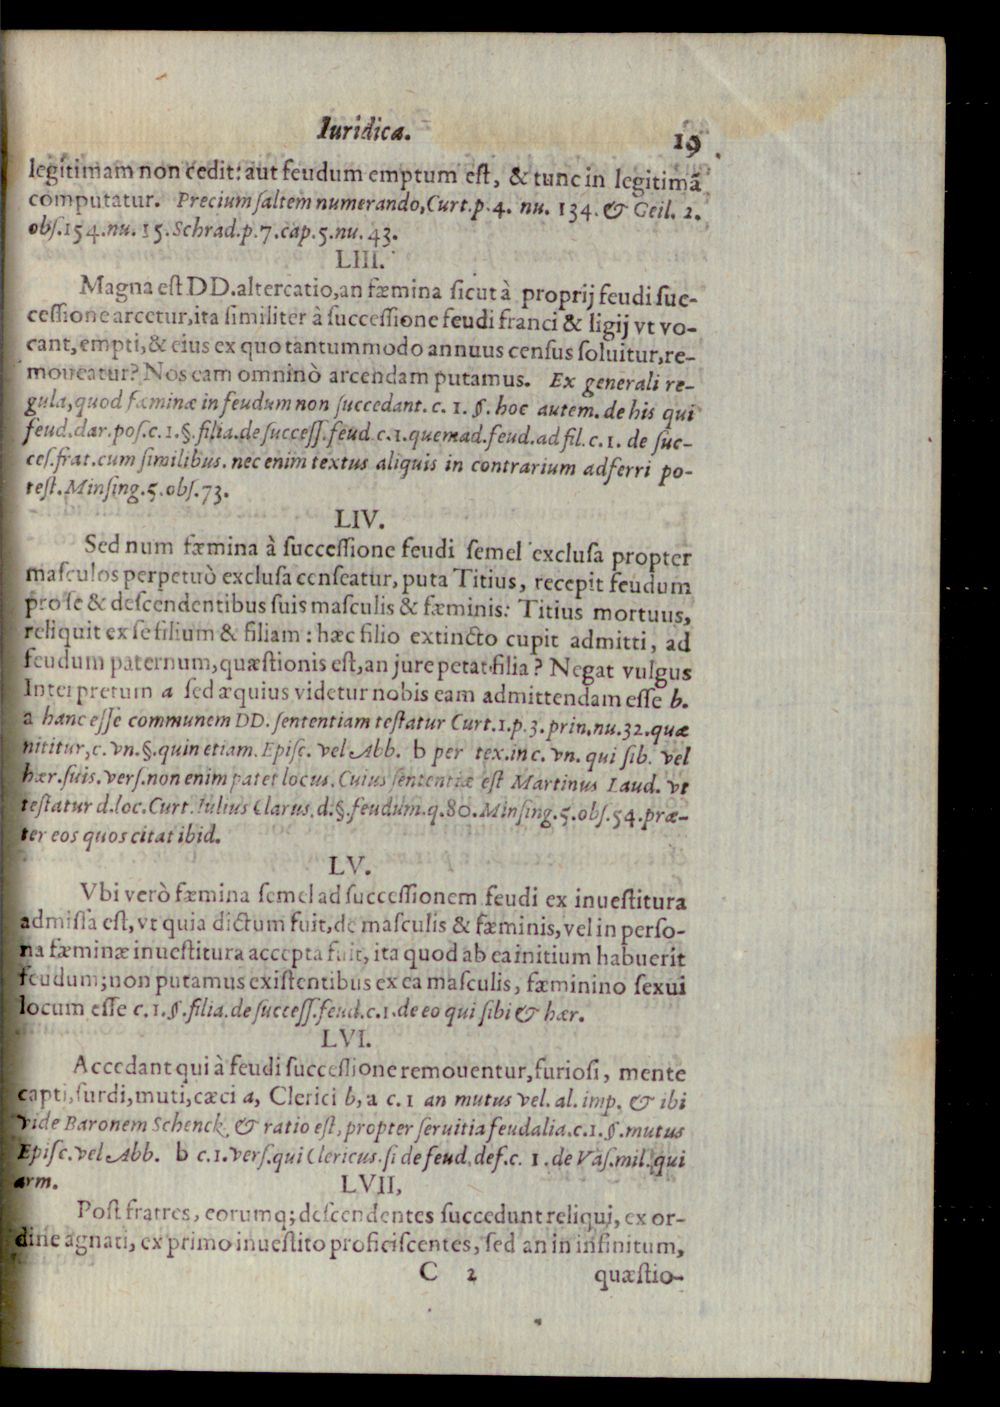 Iuridica. 19
legitimam non cedit: aut feudum emptum est, & tunc in legitimã
computatur. Precium saltem numerando, Curt. p. 4. nu. 134. & Geil. 2.
obs. 154. nu. 15. Schrad. p. 7. cap. 5. nu. 43.
LIII.
Magna est DD. altercatio, an fæmina sicut à proprij feudi suc-
cessione arcetur, ita similiter à successione feudi franci & ligij vt vo-
cant, empti, & eius ex quo tantummodo annuus census soluitur, re-
moueatur? Nos eam omninò arcendam putamus. Ex generali re-
gula, quod fæminæ in feudum non succedant. c. 1. §. hoc autem. de his qui
feud. dar. pos. c. 1. §. filia. de success. feud. c. 1. quemad. feud. ad fil. c. 1. de suc-
ces. frat. cum similibus. nec enim textus aliquis in contrarium adferri po-
test. Minsing. 5. obs. 73.
LIV.
Sed num fæmina à successione feudi semel exclusa propter
masculos perpetuò exclusa censeatur, puta Titius, recepit feudum
pro se & descendentibus suis masculis & fæminis: Titius mortuus,
reliquit ex se filium & filiam: hæc filio extincto cupit admitti, ad
feudum paternum, quæstionis est, an jure petat filia? Negat vulgus
Interpretum a sed æquius videtur nobis eam admittendam esse b.
a hanc esse communem DD. sententiam testatur Curt. 1. p. 3. prin. nu. 32. quæ
nititur, c. vn. §. quin etiam. Episc. vel Abb. b per tex. in c. vn. qui sib. vel
hær. suis. vers. non enim patet locus. Cuius sententiæ est Martinus Laud. vt
testatur d. loc. Curt. Iulius Clarus. d. §. feudum. q. 80. Minsing. 5. obs. 54. præ-
ter eos quos citat ibid.
LV.
Vbi verò fæmina semel ad successionem feudi ex inuestitura
admissa est, vt quia dictum fuit, de masculis & fæminis, vel in perso-
na fæminæ inuestitura accepta fuit, ita quod ab ea initium habuerit
feudum; non putamus existentibus ex ea masculis, fæminino sexui
locum esse c. 1. §. filia. de success. feud. c. 1. de eo qui sibi & hær.
LVI.
Accedant qui à feudi successione remouentur, furiosi, mente
capti, surdi, muti, cæci a, Clerici b, a c. 1 an mutus vel. al. imp. & ibi
vide Baronem Schenck. & ratio est, propter seruitia feudalia. c. 1. §. mutus
Episc. vel Abb. b c. 1. vers. qui Clericus. si de feud. def. c. 1. de Vas. mil. qui
arm.
LVII,
Post fratres, eorumq; descendentes succedunt reliqui, ex or-
dine agnati, ex primo inuestito proficiscentes, sed an in infinitum,
C 2 quæstio-